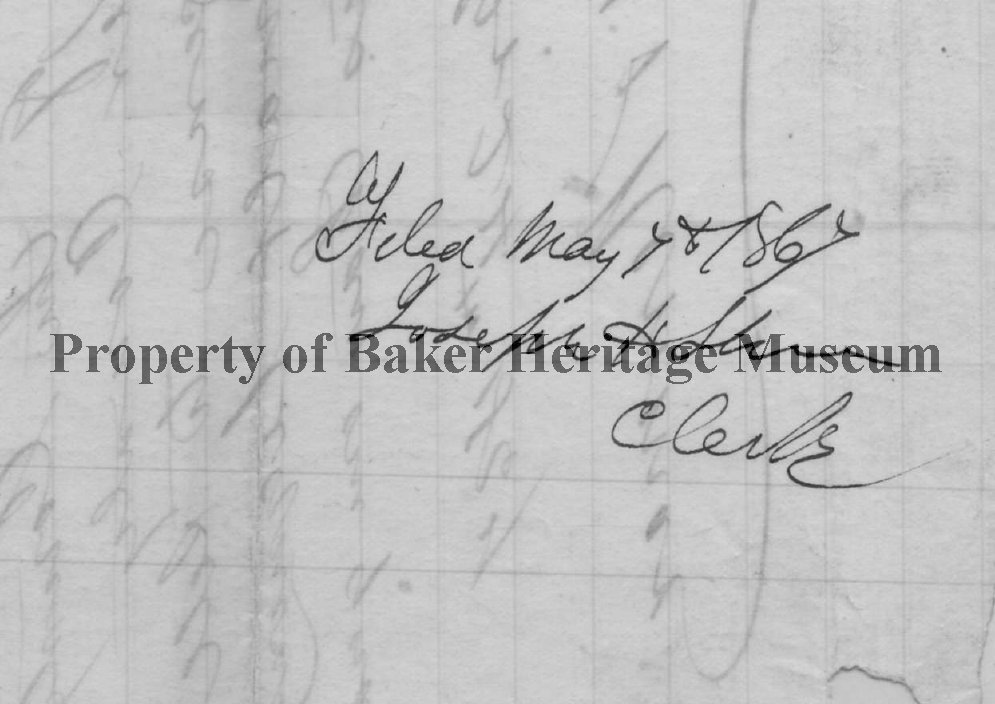 Filed May 7th 1867
Joseph H Shinn
Property of Baker Heritage Museum
Clerk